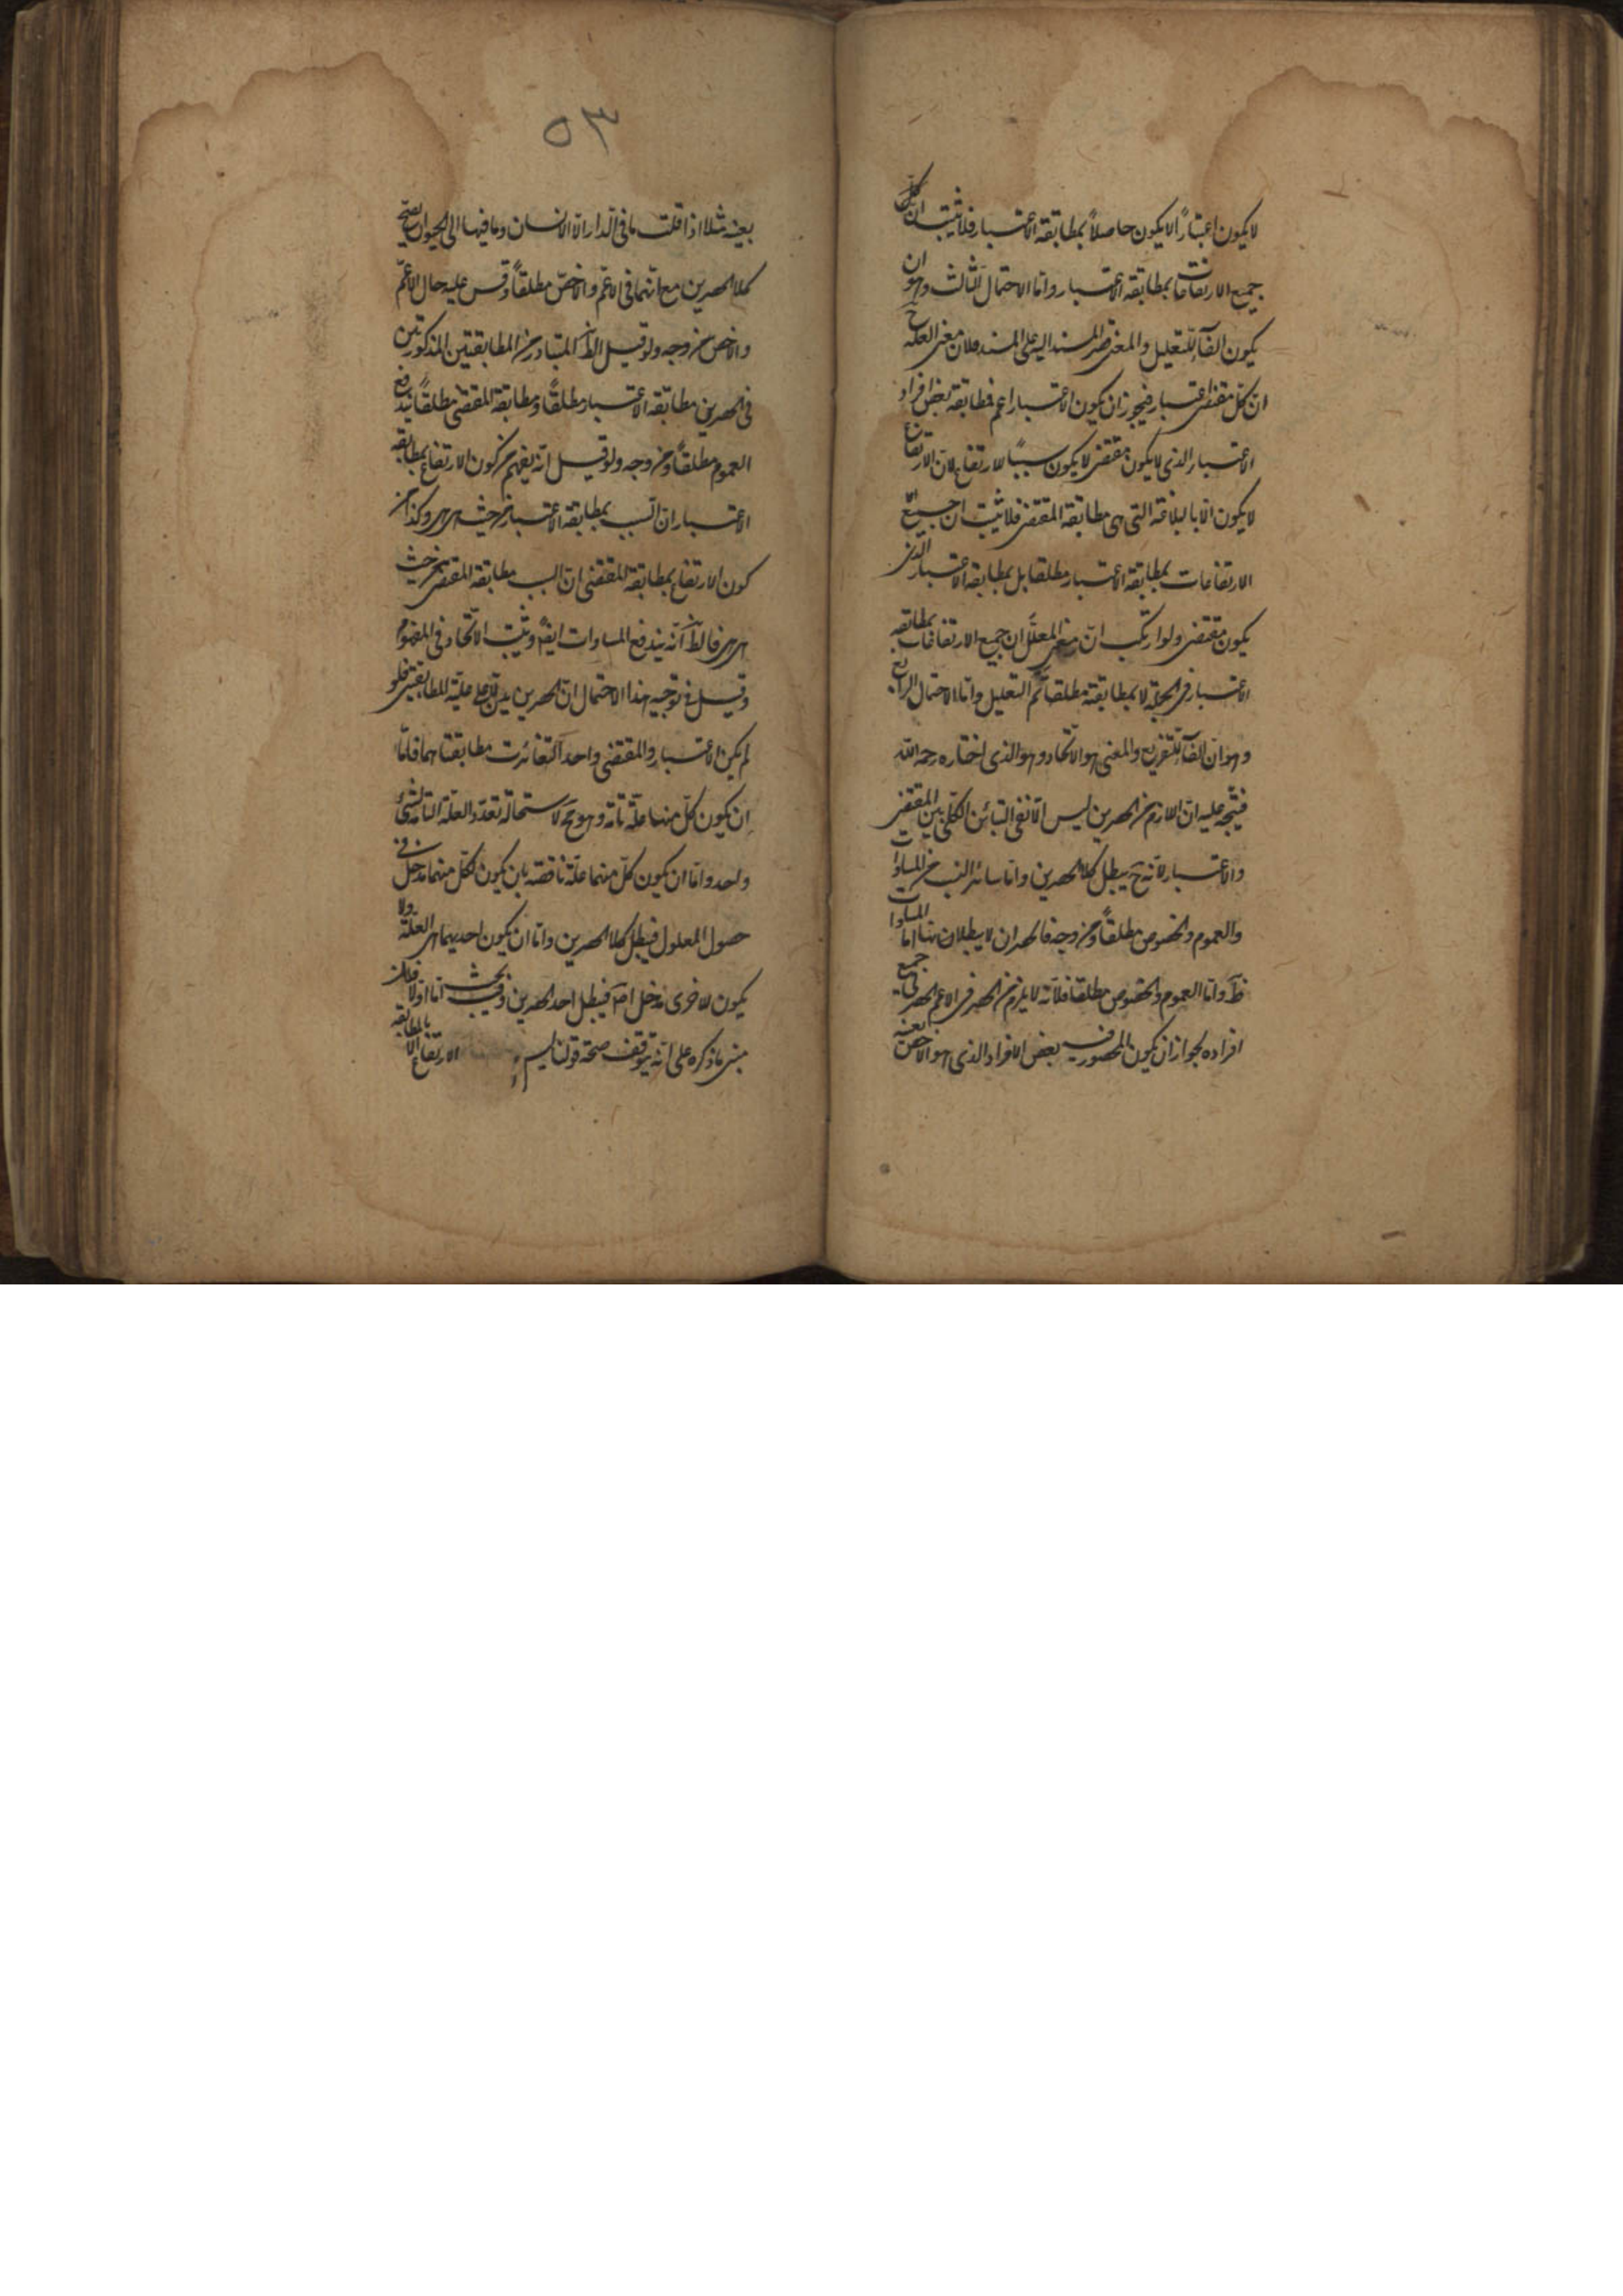 لا يكون اعتبارًا لا يكون حاصلاً بمطابقة الاعتبار فلا يثبت ان كل
جميع الارتفاعات بمطابقة الاعتبار واما الاحتمال الثالث وهو ان
يكون الفاء للتعليل والمعنى قصر المسند اليه على المسند فلان معنى العلة ح
ان كل مقتضى اعتبار فيجوز ان يكون الاعتبار اعم فمطابقة بعض افراد
الاعتبار الذى لا يكون مقتضى لا يكون سببًا للارتفاع لان الارتفاع
لا يكون الا بالبلاغة التى هى مطابقة المقتضى فلا يثبت ان جميع
الارتفاعات بمطابقة الاعتبار مطلقا بل بمطابقة الاعتبار الذى
يكون مقتضى ولو ارتكب انّ معنى المعلّل ان جميع الارتفاعات بمطابقة
الاعتبار فى الجملة لا بمطابقته مطلقا تم التعليل واما الاحتمال الرابع
وهو ان الفاء للتفريع والمعنى هو الاتحاد وهو الذى اختاره رحمه الله
فيتّجه عليه ان اللازم من الحصرين ليس الا نفى التباين الكلى بين المقتضى
والاعتبار لانه ح يبطل كلا الحصرين واما سائر النسب من المساوات
والعموم والخصوص مطلقًا ومن وجه فالحصران لا يبطلان بها اما المساوات
فظ واما العموم والخصوص مطلقا فلانه لا يلزم من الحصر فى الاعم الحصر فى جميع
افراده لجواز ان يكون المحصور فيه بعض الافراد الذى هو الاخص بعينه
٥٣
بعينه مثلا اذا قلت ما فى الدار الا الانسان وما فيها الا الحيوان يصح
كلا الحصرين مع انهما فى الاعمّ والاخصّ مطلقًا وقس عليه حال الاعمّ
والاخص من وجه ولو قيل الظ المتبادر من المطابقتين المذكورتين
فى الحصرين مطابقة الاعتبار مطلقًا ومطابقة المقتضى مطلقًا يندفع
العموم مطلقًا ومن وجه ولو قيل انه يفهم من كون الارتفاع بمطابقة
الاعتبار ان السبب مطابقة الاعتبار من حيث هى هى وكذا من
كون الارتفاع بمطابقة المقتضى ان السبب مطابقة المقتضى من حيث
هى هى فالظ انه يندفع المساوات ايضًا ويثبت الاتحاد فى المفهوم
وقيل فى توجيه هذا الاحتمال ان الحصرين يدلان على علية المطابقتين فلو
لم يكن الاعتبار والمقتضى واحدا لتغايرت مطابقتاهما فامّا
ان يكون كل منهما علّة تامّة وهو مح لاستحالة تعدّد العلّة التامة لشئ
واحد وامّا ان يكون كلّ منهما علّة ناقصة بان يكون لكلّ منهما مدخل فى
حصول المعلول فيبطل كلا الحصرين واما ان يكون احديهما هى العلّة ولا
يكون للاخرى مدخل اصلا فيبطل احد الحصرين وفيه بحث اما اولا فلان
مبنى ما ذكره على انه يتوقف صحة قولنا ليس الارتفاع الا بالمطابقة